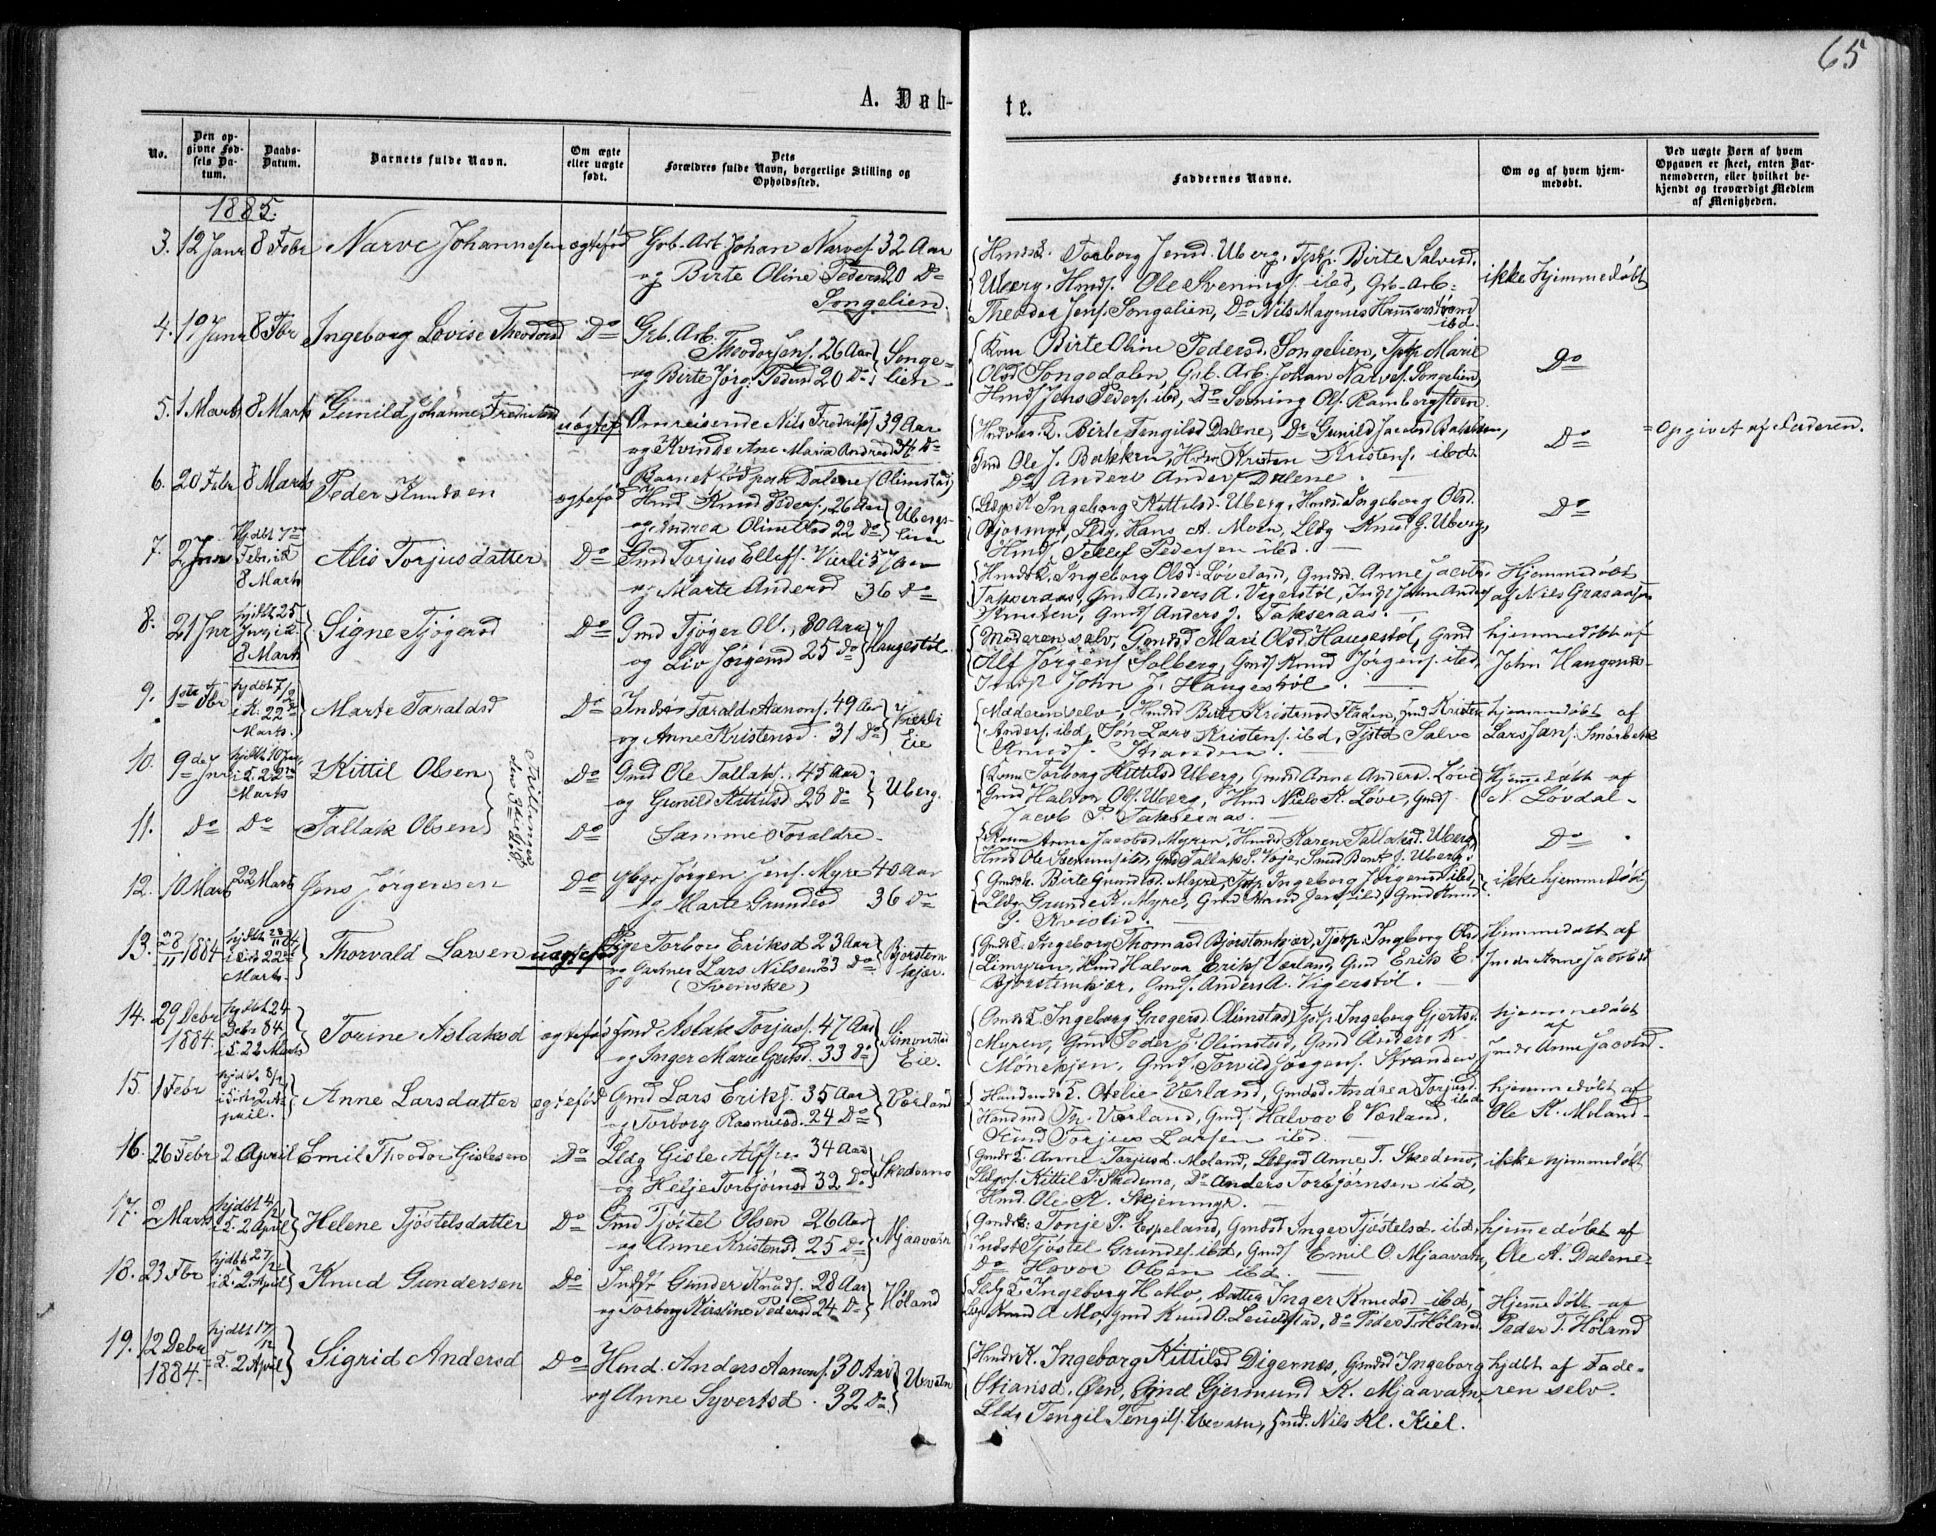 65
A. Døb-
te.
No.
Den op-
givne Fød-
sels Da-
tum.
Daabs-
Datum.
Barnets fulde Navn.
Om ægte
eller uægte
født.
Dets
Forældres fulde Navn, borgerlige Stilling og
Opholdssted.
Faddernes Navne.
Om og af hvem hjem-
medøbt.
Ved uægte Børn af hvem
Opgaven er skeet, enten Bar-
nemoderen, eller hvilket be-
kjendt og troværdigt Medlem
af Menigheden.
1885.
3. 12 Janr 8 Febr Narve Johannesen ægtefød Grb. Arb. Johan Narves. 32 Aar
og Birte Oline Pedersd 20 Do
Songelien.
Torborg Jensd. Uberg, Birte Salvesd.
Uberg, Hmds. Ole Svenings. ibd, Grb. Arb.
Theodor Jens. Songelien, Do Nils Magnus Hammerstrøm
ibd.
ikke hjemmedøbt
4. 19 Janr 8 Fbr Ingeborg Lovise Theodorsd Do Grb. Arb.
Theodor Jens. 26 Aar
og Birte Jørg. Pedersd 20 Do
Songe-
lien
Kone Birte Oline Pedersd. Songelien, Tjp Marie
Olsd Songedalen, Grb. Arb. Johan Narves. Songelien,
Hmds Jens Peders. ibd, Do Svening Ols. Rambergsteen
Do
5. 1 Marts 8 Marts Gunild Johanne Fredriksd uægtef. Omreisende Nils Fredriks. 39 Aar
og Kvinde Ane Maria Andresd 34 Do
Barnet fød paa Dalene (Olimstad)
Birte Tengilsd Dalene, Do Gunild Jacobsd Bakken,
Gmd Ole J. Bakken, Kristen Kristens. ibd.
Do Anders Anders. Dalene.
Do
Opgivet af Faderen.
6. 20 Febr 8 Marts Peder Knudsen ægtefød Hmd. Knud Peders., 26 Aar
og Andrea Olimsd 22 Do
Ubergs-
lien
Ingeborg Kittilsd. Uberg, Ingeborg Olsd.
Bjørmyr, Ldg. Hans A. Moen, Ldg Knud G. Uberg,
Hmds. Tellef Pedersen ibd.
Do
7. 2 Janr Hjdbt 7de
Febr i K
8 Marts
Alis Torjusdatter Do Gmd Torjus Ellefs. Vierli 57 Aar
og Marte Andersd 36 Do
Ingeborg Olsd. Løveland, Gmdsd. Anne Jacobsd
Takseraas, Gmd Anders A. Vigerstøl, John Anders
Gmds Anders J. Takseraas.
Hjemmedøbt
af Nils Grasaasen
8. 21 Jnr hjdbt 25
Jnr, i K
8 Marts
Signe Tjøgersd Do Gmd Tjøger Ols., 30 Aar
og Liv Jørgensd 25 Do
Haugestøl
Moderen selv, Gmdsd Mari Olsd. Haugestøl, Gmd
Alf Jørgens. Solberg, Gmds Knud Jørgens. ibd,
John J. Haugestøl.
hjemmedøbt af
John Haugenes-
9. 1ste Fbr hjdbt 7/2
i K. 22de
Marts.
Marte Taraldsd Do Inds. Tarald Aanons. 49 Aar
og Anne Kristensd. 31 Do
Vierli
Eie
Moderen selv, Birte Kristensd Staden, Gmd Kristen
Anders. ibd, Søn Lars Kristens. ibd, Salve
Knuds. Stranden.
hjemmedøbt af
Lars Jans. Smørbek
10. 9de Jnr hjdbt 10 Jnr,
i K. 22de
Marts
Kittil Olsen Do Gmd Ole Tallaks. 45 Aar
og Gunild Kittilsd 28 Do
Uberg.
Kone Torborg Kittilsd Uberg, Gmdsd Anne Andersd. Løve
Gmd Halvor Ols. Uberg, Hmd Niels K. Løve, Gmds.
Jacob P. Takseraas.
hjemmedøbt af
N. Løvdal-
11. Do Do Tallak Olsen Do Samme Forældre.
Kone Anne Jacobsd Myren, Hmds Karen Tallaksd. Uberg
Hmd Ole Svenuns. ibd, Gmd Tallak S. Voje, Bent J. Uberg.
Do
12. 10 Marts 22 Marts Jens Jørgensen Do Jørgen Jens. Myre 40 Aar
og Marte Grundesd 36 Do
Birte Grundesd. Myre, Ingeborg Jørgensd ibd,
Ldg. Grunde K. Myre, Gmd Jens. ibd, Gmd Knud
G. Kvistid.
ikke hjemmedøbt
13. 28/11 1884 hjdbt 28/11 84
i K. 22de
Marts.
Thorvald Larsen uægtefød Pige Torbor Eriksd 23 Aar
og Gartner Lars Nilsen 23 Do
(Svenske)
Bjorsten-
kjær.
Ingeborg Thomasd Bjorstenkjær, Tjp. Ingborg Olsd
Limyren, Gmd Halvor Eriks. Værland, Gmd Erik E.
Bjorstenkjær, Gmds. Anders A. Vigerstøl.
Hjemmedøbt af
Inds. Anne Jacobsd
14. 29 Debr
1884.
hjdbt 24
Debr 84.
i K. 22 Marts
Torine Aslaksd ægtefød Gmd Aslak Torjus. 47 Aar
og Inger Marie Gjertsd. 33 Do
Simonstad
Eie.
Ingeborg Gregersd. Olimstad, Tjp. Ingeborg Gjertsd.
Myren, Gmd Peder J. Olimstad, Gmd Anders K.
Mønekjen, Gmd. Torvild Jørgens. Stranden
hjemmedøbt
af
Inds Anne Jacobsd.
15. 1 Febr hjdbt. 8/2
i K. 2 A-
pril.
Anne Larsdatter ægtefød Gmd Lars Eriks. 35 Aar
og Torborg Rasmusd. 24 Do
Værland
Otelie Værland, Gmdsd. Andrea Torjusd.
ibd
Th. Værland, Gmds Halvor E Værland.
Gmd Torjus Larsen ibd.
hjemmedøbt af
Ole K. Moland-
16. 26 Febr 2 April Emil Theodor Gislesen Do Ldg Gisle Alfsen 34 Aar
og Helje Torbjørnsd 32 Do
Skedsmo
Anne Torjusd. Moland, Anne T. Skedsmo,
Kittil T. Skedsmo, Do Anders Torbjørnsen ibd,
Hmd. Ole K. Skjenmyr.
ikke hjemmedøbt
17. 2 Marts hjdbt 4/3
i K. 2 April
Helene Tjøstelsdatter Do Gmd Tjøstel Olsen 26 Aar
og Anne Kristensd 25 Do
Mjaavatn
Tonje P. Espeland, Gmdsd Inger Tjøstelsd. ibd.
Indst Tjøstel Grundes. ibd, Gmds Emil O. Mjaavatn,
Do Havor Olsen ibd.
hjemmedøbt af
Ole A. Dalene-
18. 23 Fbr hjdbt 27/2
i K. 2 April
Knud Gundersen Do Indst Gunder Knuds. 28 Aar
og Torborg Kirstine Pedersd 24 Do
Høland
Ingeborg Hatlo, Datter Inger Knudsd ibd,
Knud A Mo, Gmd Knud O. Do Peder T. Høland.
Hjemmedøbt af
Peder T. Høland
19. 12 Debr
1884.
hjdbt 17/12
i K. 2 April
Sigrid Andersd Do Hmd. Anders Aanons. 30 Aar
og Anne Syvertsd. 32 Do
Uvatn
Hmds K. Ingeborg Kittilsd Digernes, Gmdsd Ingeborg
Stiansd. Øen, Gmd Gjermund K. Mjaavatn,
Ldg Tengil Tengils. Uvatn, Gmd. Nils Kl. Kiel.
hjdbt af Fade-
ren selv.
Tvillinger